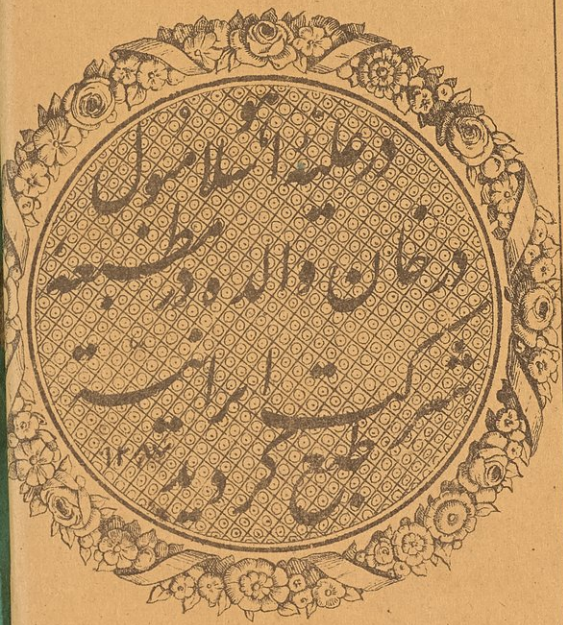 در علیهٔ اسلامبول
در خان والده در مطبعهٔ
شرکت ایرانیت
طبع گردید